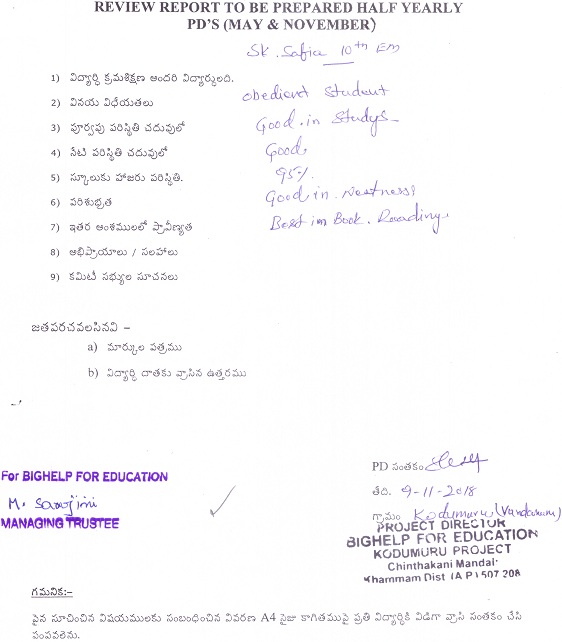 REVIEW REPORT TO BE PREPARED HALF YEARLY
PD'S (MAY & NOVEMBER)
Sk. Safiea 10th EM
1) విద్యార్థి క్రమశిక్షణ ఆందరి విద్యార్థులది.
2) వినయ విధేయతలు obedient Student
3) పూర్వపు పరిస్థితి చదువులో Good in Studys
4) నేటి పరిస్థితి చదువులో Good
5) స్కూలుకు హాజరు పరిస్థితి. 95%
6) పరిశుభ్రత Good in Neatness
7) ఇతర అంశములలో ప్రావీణ్యత Best in Book. Reading.
8) అభిప్రాయాలు / సలహాలు
9) కమిటీ సభ్యుల సూచనలు
జతపరచవలసినవి –
a) మార్కుల పత్రము
b) విద్యార్థి దాతకు వ్రాసిన ఉత్తరము
PD సంతకం
For BIGHELP FOR EDUCATION
తేది. 9-11-2018
M. Sarojini
గ్రామం Kodumuru (Vandanam)
MANAGING TRUSTEE
PROJECT DIRECTOR
BIGHELP FOR EDUCATION
KODUMURU PROJECT
Chinthakani Mandal
Khammam Dist (A P) 507 208
గమనిక:-
పైన సూచించిన విషయములకు సంబంధించిన వివరణ A4 సైజు కాగితముపై ప్రతి విద్యార్థికి విడిగా వ్రాసి సంతకం చేసి
పంపవలెను.